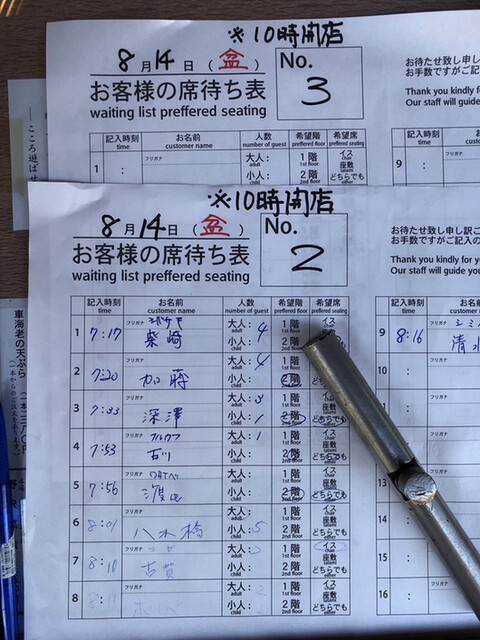 ※10時開店
8月14日(盆)
No.
3
お客様の席待ち表
waiting list preffered seating
お待たせ致し申し
お手数ですがご記
Thank you kindly fo
Our staff will guide
記入時刻 お名前 人数 希望階 希望席
time customer name number of guest preffered floor preffered seating
1 : フリガナ 大人: 1階 イス
adult 1st floor chair
小人: 2階 座敷
child 2nd floor どちらでも
9 :
こころ遊ばせ
※10時開店
8月14日(盆)
No.
2
お客様の席待ち表
waiting list preffered seating
お待たせ致し申し訳ご
お手数ですがご記入の
Thank you kindly for
Our staff will guide you
記入時刻 お名前 人数 希望階 希望席
time customer name number of guest preffered floor preffered seating
1 7:17 柴崎 大人: 4 1階 イス
小人: 2階
2 7:20 フリガナ 加藤 大人: 4 1階
小人: 2階
3 7:33 フリガナ 深澤 大人: 3 1階 イス
小人: 1 2階 どちらでも
4 7:53 フリガナ フルカワ 古川 大人: 1 1階 イス
小人: 2階 どちらでも
5 7:56 フリガナ ワタナベ 大人: 1階 イス 座敷
小人: 2階 どちらでも
6 8:01 フリガナ 八木橋 大人: 1階 イス 座敷
小人: 5 2階 どちらでも
7 8:11 フリガナ 古賀 大人: 1階 イス 座敷
小人: 2階 どちらでも
8 フリガナ 大人: 1階 イス 座敷
小人: 2階 どちらでも
9 8:16 フリガナ 清水
10 : フリガナ
12 :
13
14
15 : フリガナ
16 : フリガナ
車海老の天ぷら